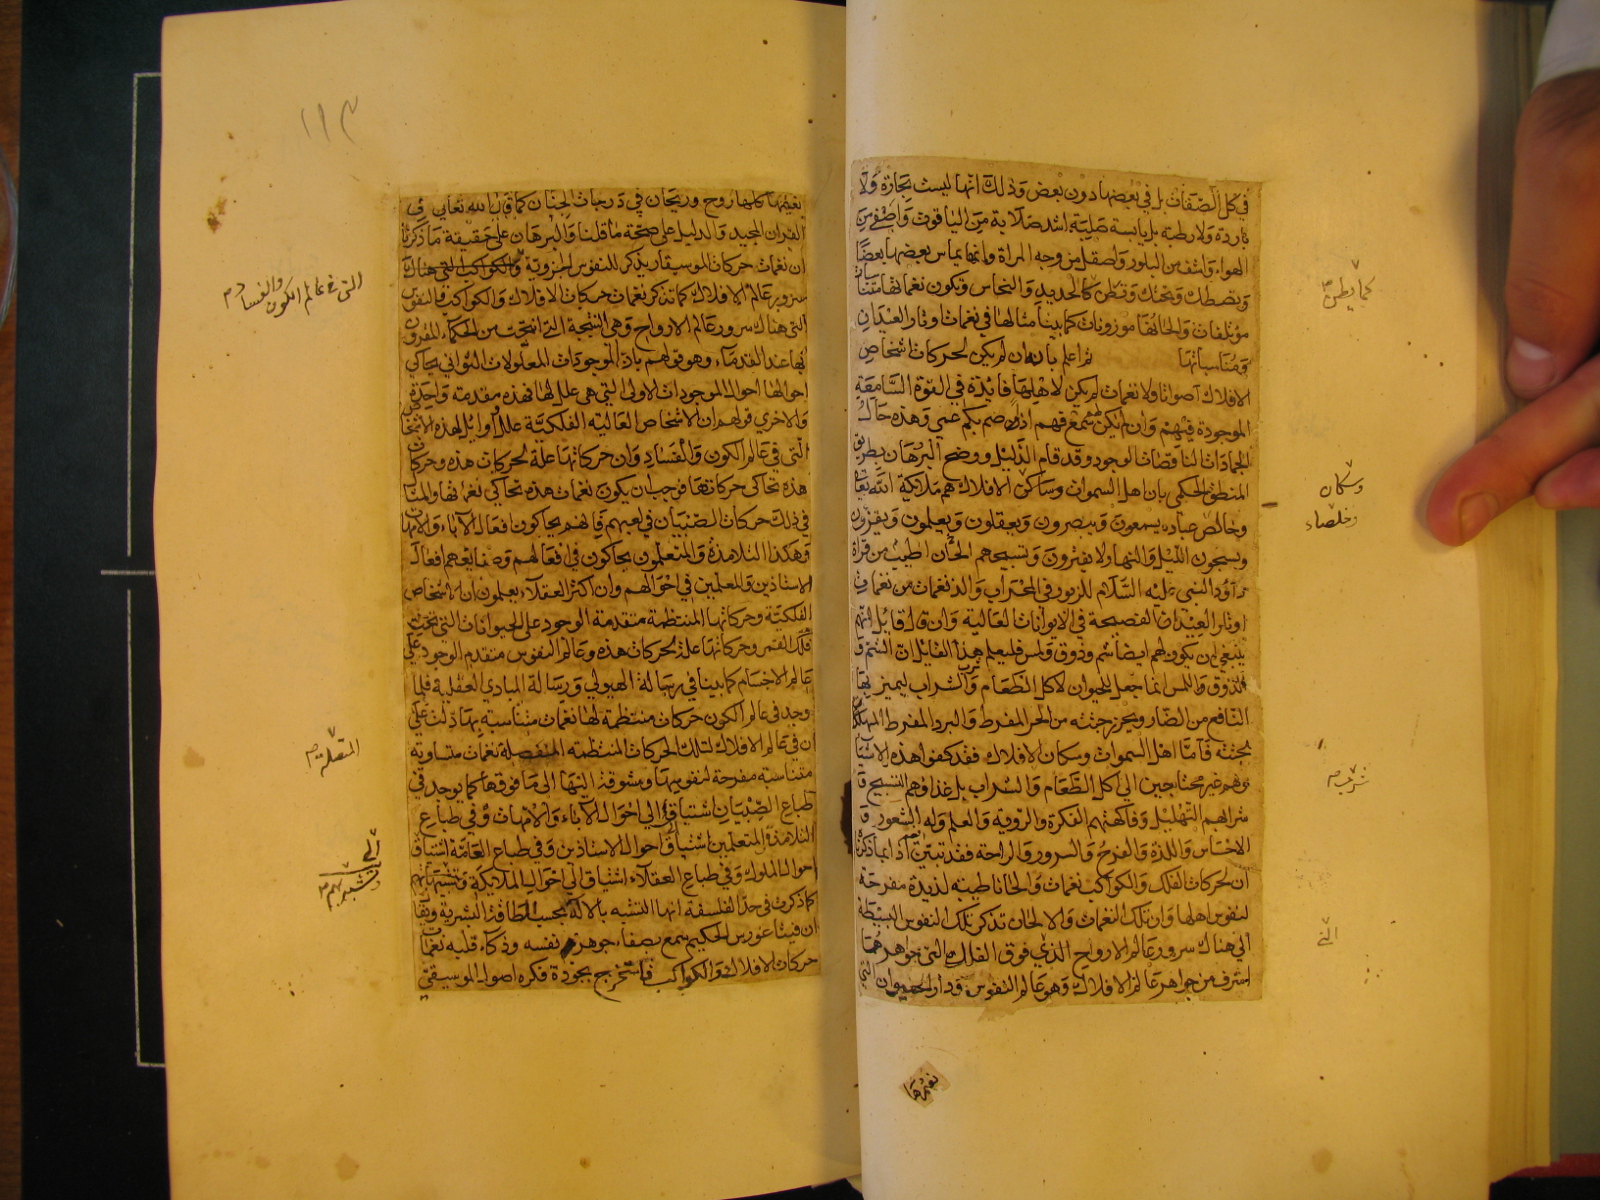 في كل الصفات بل في بعضها دون بعض وذلك انها ليست بحارة ولا
باردة ولا رطبة بل يابسة صلبة اشد صلابة من الياقوت واصفى من
الهواء واشف من البلور واصقل من وجه المرآة وانها يماس بعضها بعضا
وتصطك وتحتك وتطن كالحديد والنحاس وتكون نغماتها متناسبات
مؤتلفات والحانها موزونات كما بينا مثالها في نغمات اوتار العيدان
ومناسباتها ثم اعلم بانه ان لم يكن لحركات اشخاص
الافلاك اصوات ولا نغمات لم يكن لاهلها فائدة في القوة السامعة
الموجودة فيهم وان لم يكن سمع فهم اذن صم بكم عمي وهذه حال
الجمادات الناقصات الوجود وقد قام الدليل ووضح البرهان بطريق
المنطق الحكمي بان اهل السموات وساكن الافلاك هم ملائكة الله تعالى
وخالص عباده يسمعون ويبصرون ويعقلون ويعلمون ويقرون
ويسبحون الليل والنهار لا يفترون وتسبيحهم الحان اطيب من قراة
داؤد النبي عليه السلام للزبور في المحراب والذ نغمات من نغمات
اوتار العيدان الفصيحة في الايوانات العالية وان قال قايل انهم
ينبغي ان يكون لهم ايضا شم وذوق ولمس فليعلم هذا القايل ان الشم و
الذوق واللمس انما جعل للحيوان لاكل الطعام والشراب ليميز بها
النافع من الضار ويحرز جثته من الحر المفرط والبرد المفرط المهلك
لجثته فاما اهل السموات وسكان الافلاك فقد كفوا هذه الاشيا
وهم غير محتاجين الى اكل الطعام والشراب بل غذاوهم التسبيح و
شرابهم التهليل وفاكهتهم الفكرة والروية والعلم وله الشعور و
الاحساس واللذة والفرح والسرور والراحة فقد تبين اذا بما ذكرنا
ان لحركات الفلك والكواكب نغمات والحانا طيبة لذيذة مفرحة
لنفوس اهلها وان تلك النغمات والالحان تذكر تلك النفوس البسيطة
التي هناك سرور عالم الارواح الذي فوق الفلك التي جواهرهما
اشرف من جواهر عالم الافلاك وهو عالم النفوس ودار الحيوان التي
نعيمها
كما يطن
وسكان
وخلصاء
شرب
التي
١١٣
نعيمها كلها روح وريحان في درجات الجنان كما قال الله تعالى في
القران المجيد والدليل على صحة ما قلنا والبرهان على حقيقة ما ذكرنا
ان نغمات حركات الموسيقار يذكر للنفوس الجزوية والكواكب التي هناك
سرور عالم الافلاك كما تذكر نغمات حركات الافلاك والكواكب فالنفوس
التي هناك سرور عالم الارواح وهي النتيجة التي انتجت من الحكماء المقرون
بها عند القدماء وهو قولهم بان الموجودات المعلولات الثواني يحاكي
احوالها احوال الموجودات الاولى التي هي علل لها فهذه مقدمة واحدة
والاخرى قولهم ان الاشخاص العالية الفلكية علل اوايل لهذه الاشخاص
التي في عالم الكون والفساد وان حركاتها علة لحركات هذه وحركات
هذه تحاكي حركاتها فوجب ان يكون نغمات هذه تحاكي نغماتها والمثال
في ذلك حركات الصبيان في لعبهم فانهم يحاكون افعال الاباء والامهات
وهكذا التلامذة والمتعلمون يحاكون في افعالهم وصنايعهم افعال
الاستاذين والمعلمين في احوالهم وان اكثر العقلاء يعلمون ان الاشخاص
الفلكية وحركاتها المنتظمة متقدمة الوجود على الحيوانات التي تحت
فلك القمر وحركاتها علة لحركات هذه وعالم النفوس متقدم الوجود على
عالم الاجسام كما بينا في رسالة الهيولى ورسالة المبادي العقلية فلما
وجد في عالم الكون حركات منتظمة لها نغمات متناسبة بهما دلت على
ان في عالم الافلاك لتلك الحركات المنتظمة المنفصلة نغمات متساوية
متناسبة مفرحة لنفوسها ومشوقة اليها الى ما فوقها كما يوجد في
طباع الصبيان اشتياق الى احوال الآباء والامهات وفي طباع
التلامذة المتعلمين اشتياق احوال الاستاذين وفي طباع العامة اشتياق
احوال الملوك وفي طباع العقلاء اشتياق الى احوال الملائكة وتشبهاتهم
كما ذكرت في حد الفلسفة انها التشبه بالاله بحسب الطاقة البشرية ويقال
ان فيثاغورس الحكيم سمع بصفاء جوهر نفسه وذكاء قلبه نغمات
حركات الافلاك والكواكب فاستخرج بجودة فكره اصول الموسيقى
التي في عالم الكون والفساد
المتصلة
الى
وتشبه بهم